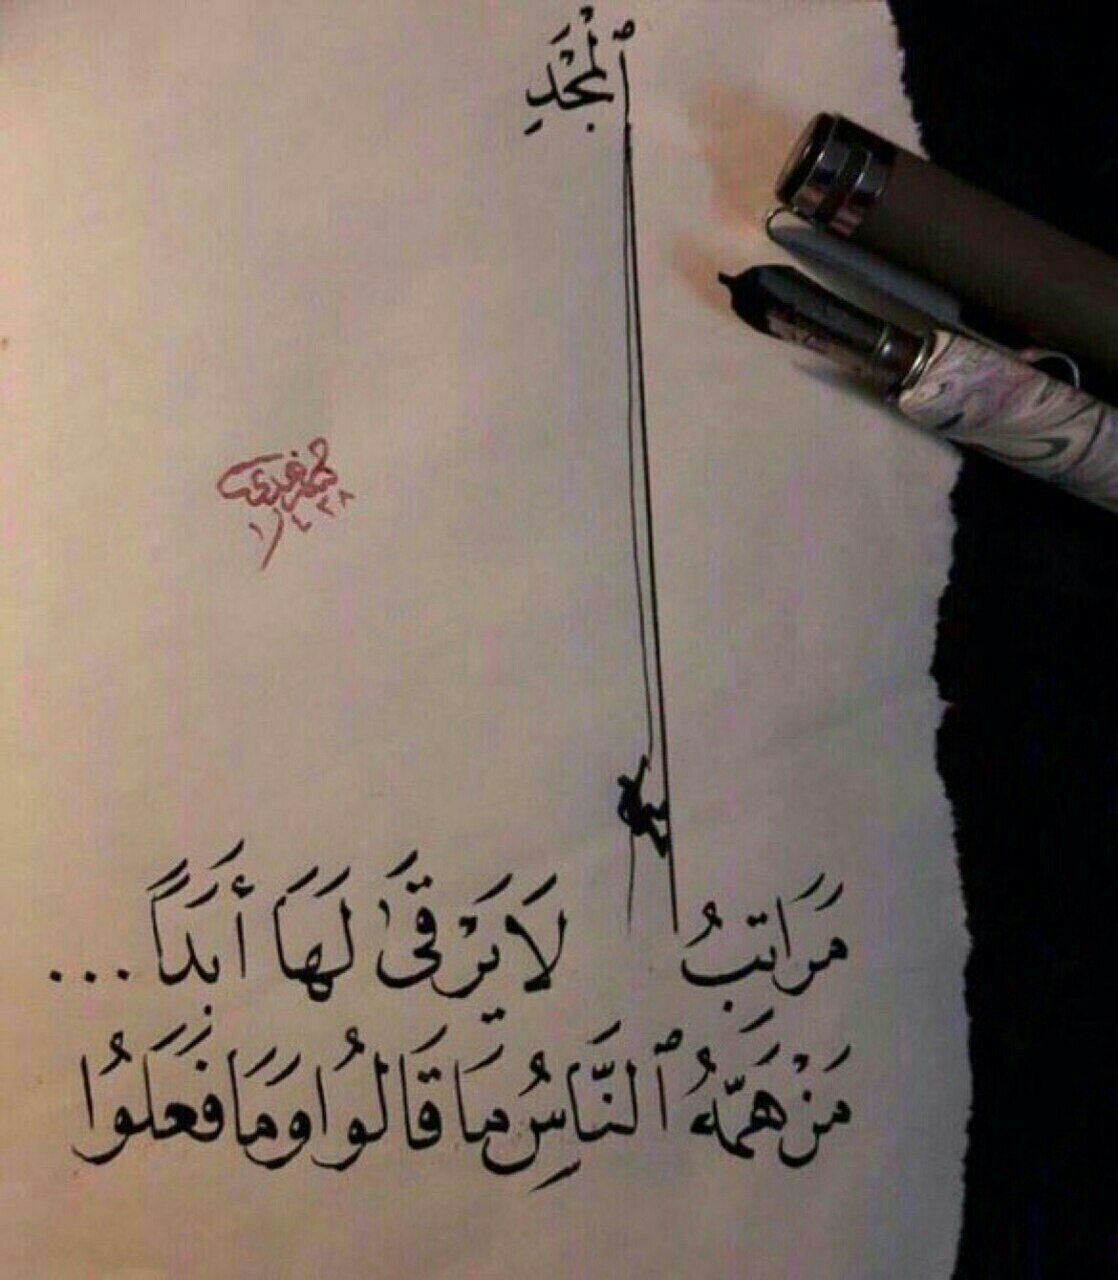 ٱلْمَجْدِ
مَرَاتِبُ لَا يَرْقَىٰ لَهَا أَبَدًا ...
مَنْ هَمُّهُ ٱلنَّاسُ مَا قَالُوا وَمَا فَعَلُوا